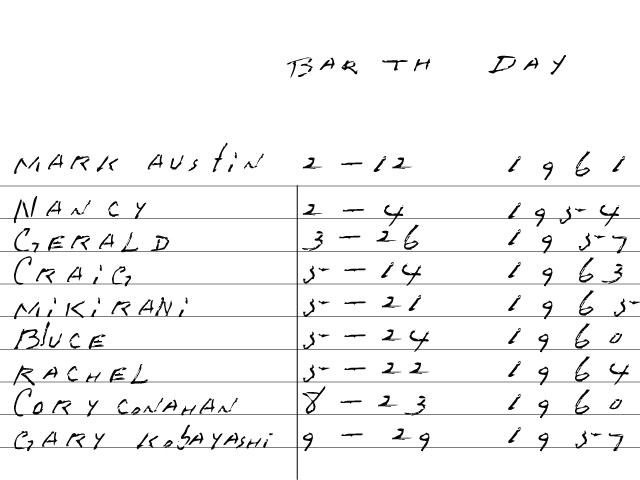 BARTH DAY
MARK AUStiN 2 - 12 1961
NANCY 2 - 4 1954
GERALD 3 - 26 1957
CRAiG 5 - 14 1963
MiKiRANi 5 - 21 1965
BlUCE 5 - 24 1960
RACHEL 5 - 22 1964
CORY CONAHAN 8 - 23 1960
GARY KobAYASHi 9 - 29 1957